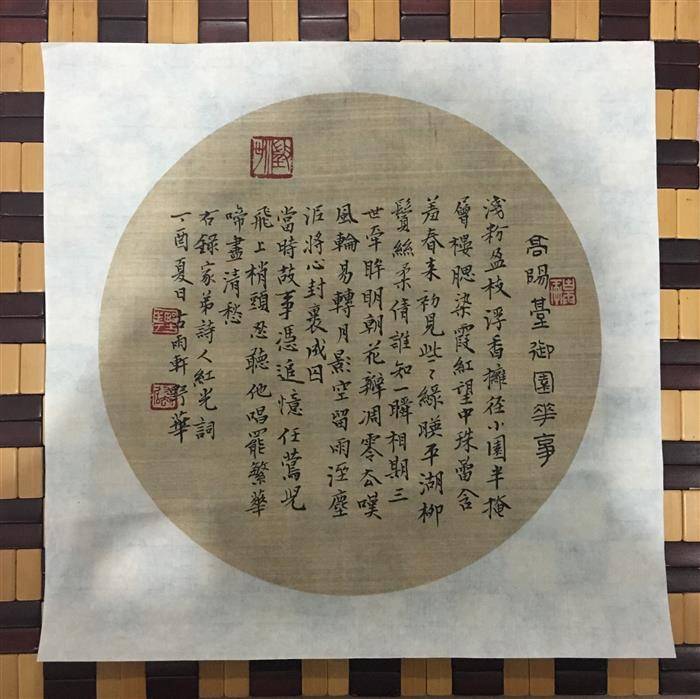 高陽臺御園華事
淺粉盈枝浮香擁径小園半掩
層樓腮染霞紅望中珠蕾含
羞春来初見些〻綠暎平湖柳
鬢絲柔倩誰知一瞬相期三
世牽眸明朝花瓣凋零厺嘆
風輪易轉月影空留雨溼塵
泥將心封裹成囚
當時故事憑追憶任鶯兒
飛上梢頭忍聽他唱罷繁華
啼盡清愁
右錄家弟詩人紅光詞
丁酉夏日古雨軒野華